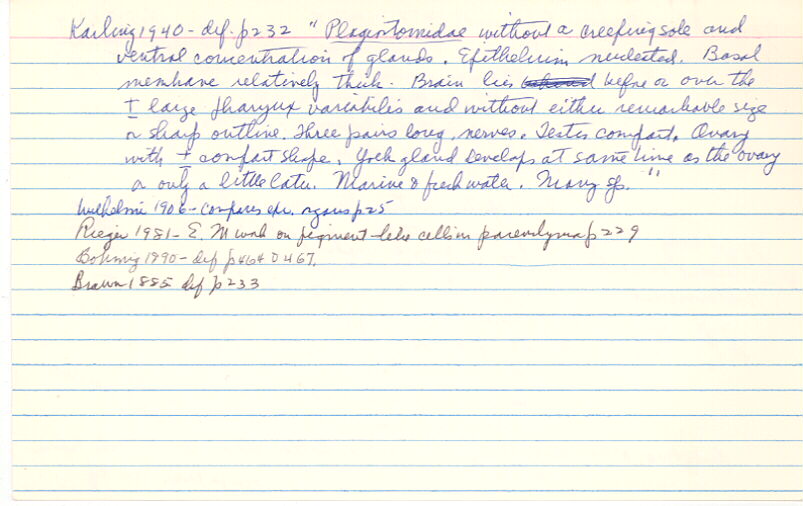 Karling 1940 - def. p232 " Plagiostomidae without a creeping sole and
ventral concentration of glands. Epithelium nucleated. Basal
membrane relatively thick. Brain lies before or over the
± large pharynx variabilis and without either remarkable size
or sharp outline. Three pairs long. nerves. Testes compact. Ovary
with ± compact shape. Yock gland develops at same time as the ovary
or only a little later. Marine & fresh water. Many sp. "
Wilhelmi 1906 - compares exc. organs p25
Rieger 1981 - E. M work on pigment-like cells in parenchyma p229
Bohmig 1890 - def p464 D 467.
Braun 1885 def p233